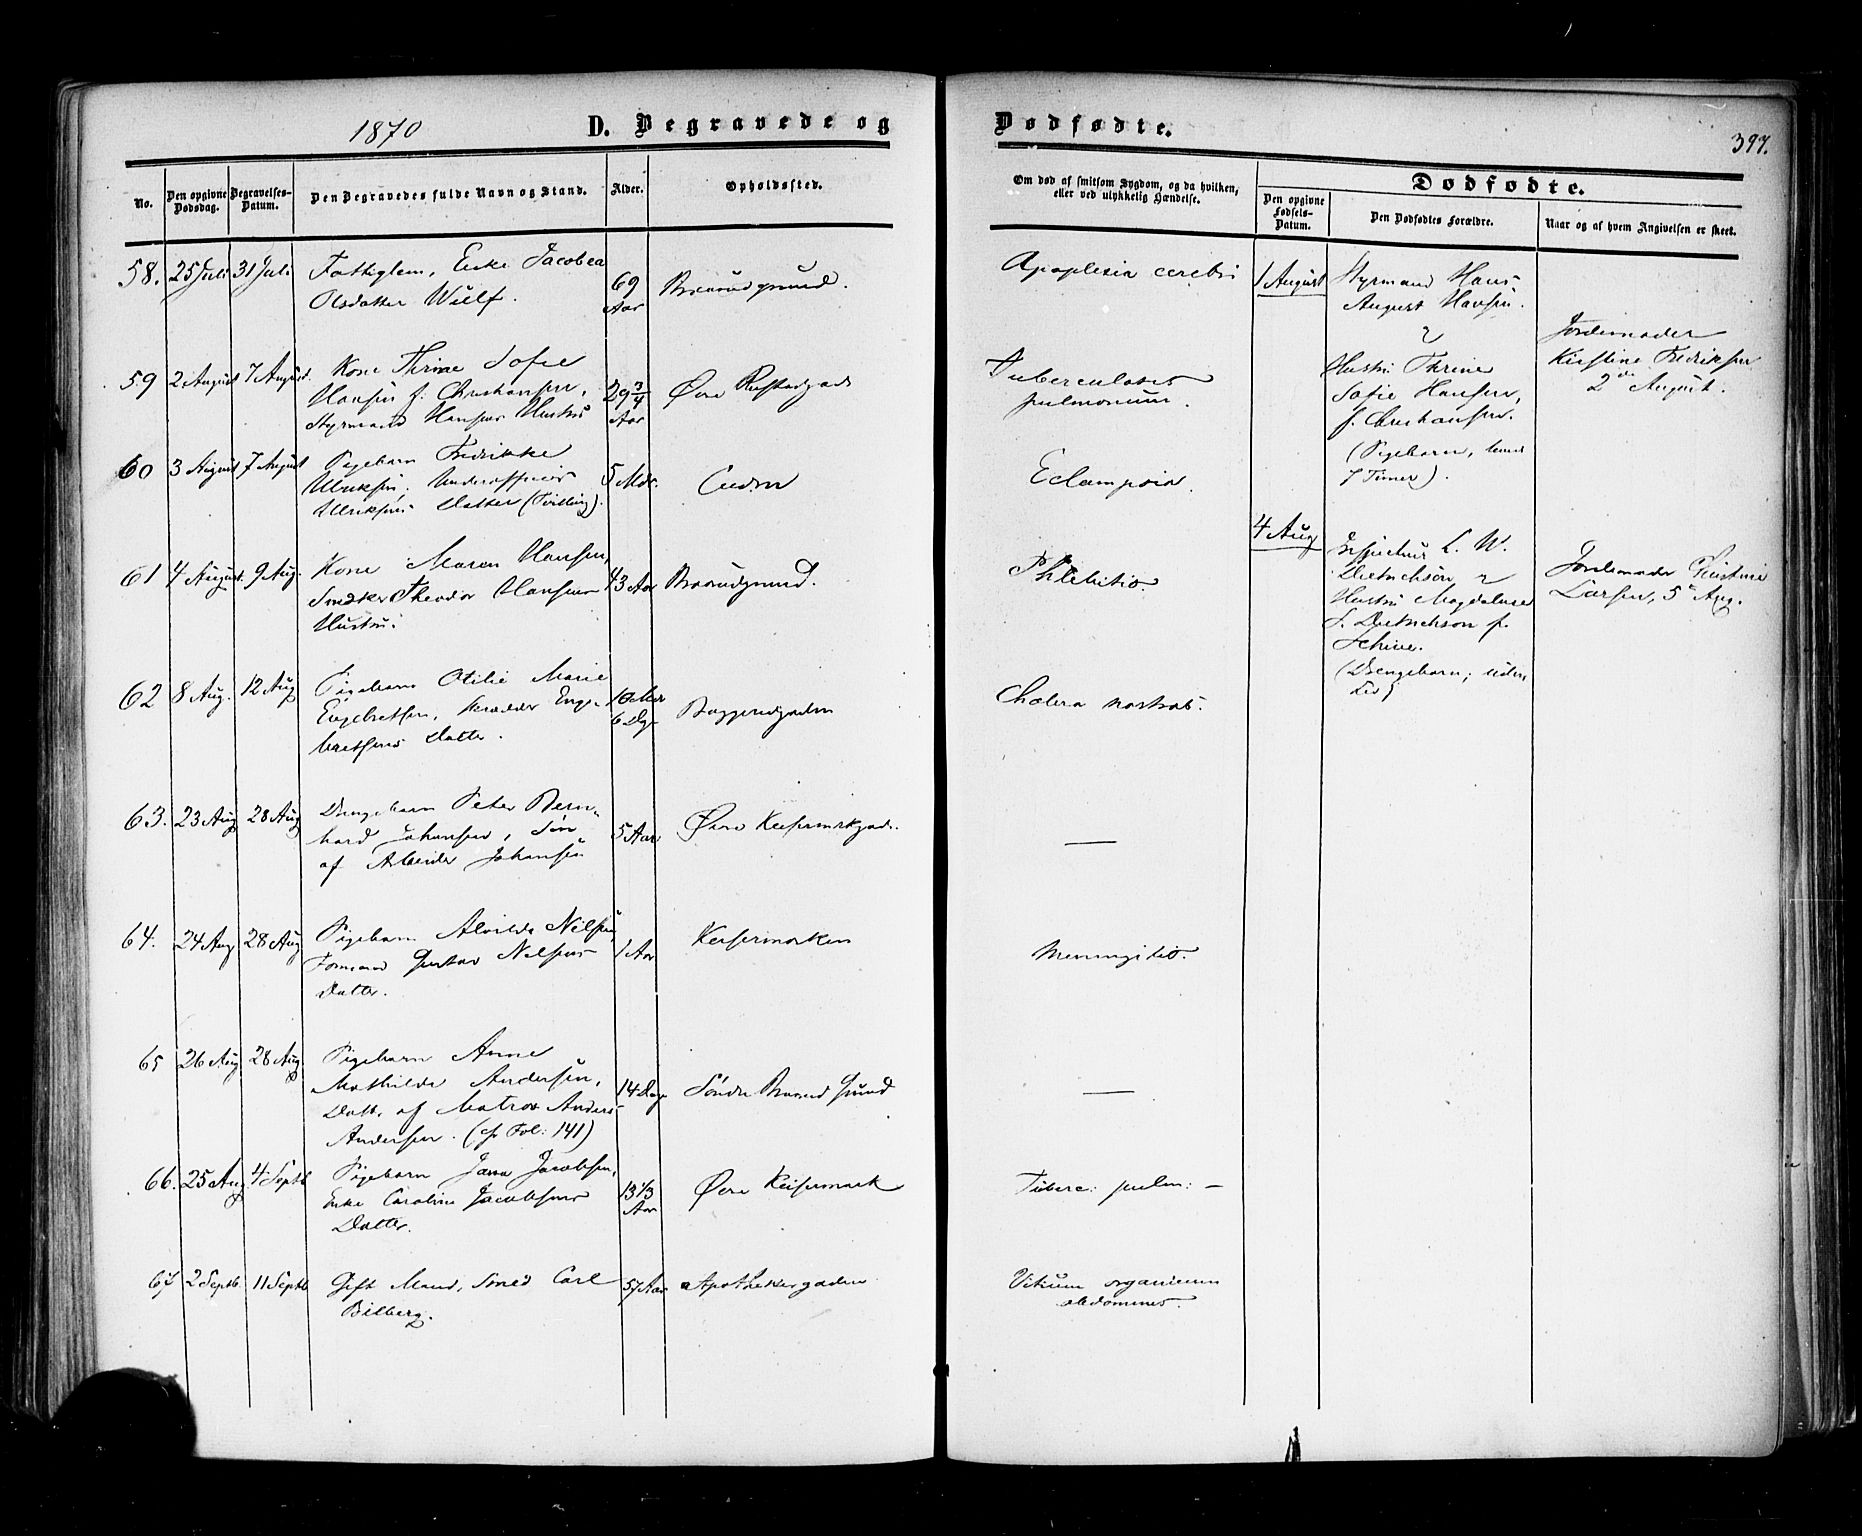 1870
D. Begravede og
Dødfødte.
397.
No.
Den opgivne Dødsdag.
Begravelses-Datum.
Den Begravedes fulde Navn og Stand.
Alder.
Opholdssted.
Om død af smitsom Sygdom, og da hvilken,
eller ved ulykkelig Hændelse.
Dødfødte.
Den opgivne Fødsels-Datum.
Den Dødfødtes Forældre.
Naar og af hvem Angivelsen er skeet.
58. 25 Juli 31 Juli
Fattiglem, Enke Jacobea
Olsdatter Wulf.
69
Aar
Apoplexia cerebri
59 2 August 7 August
Kone Thrine Sofie
Hansen f. Christiansen,
Styrmand Hansens Hustru
29 3/4
Aar
Øvre
Tuberculosis
pulmonum.
60 3 August 7 August
Pigebarn Fredrikke
Ulriksen, Underofficier
Ulriksens Datter (Tvilling).
5 Mdr.
Eclampsia.
61 4 August. 9 Aug.
Kone Maren Hansen,
Snedker Theodor Hansens
Hustru.
43 Aar
Phlebitis.
62 8 Aug. 12 Aug
Pigebarn Otilie Marie
Engebretsen, Skrædder Enge-
bretsens Datter.
10 Mdr
6 Dge
Cholera nostras.
63. 23 Aug 28 Aug
Drengebarn Peter Bern-
hard Johansen, Søn
af Arbeider Johansen
5 Aar
Øvre
—
64. 24 Aug 28 Aug
Pigebarn Alvilde Nilsen,
Formand Gustav Nilsens
Datter.
1 Aar
Keisermarken
Meningitis.
65 26 Aug 28 Aug.
Pigebarn Anne
Mathilde Andersen,
Datt. af Matros Anders
Andersen. (cfr Fol: 141)
14 Dage
Søndre Brand Grund
—
66. 25 Aug 4 Septb
Pigebarn Jacobsen,
Enke Caroline Jacobsens
Datter.
13 1/3
Aar
Øvre Keisermark
Tuberc: pulm: —
67 2 Septb. 11 Septb
Gift Mand, Smed Carl
Bilberg.
57 Aar
Apothekergaden
Vitium organicum
abdominis.
1 August
Styrmand Hans
August Hansen
&
Hustru Thrine
Sofie Hansen,
f. Christiansen.
(Pigebarn, levede
7 Timer).
Jordemoder
Kirstine Fredriksen
2den August.
4 Aug
Inspecteur L. W.
Dietrichson &
Hustru Magdalene
S. Dietrichson f.
(Drengebarn; uden
Liv)
Jordemoder Kirstine
Larsen, 5te Aug.